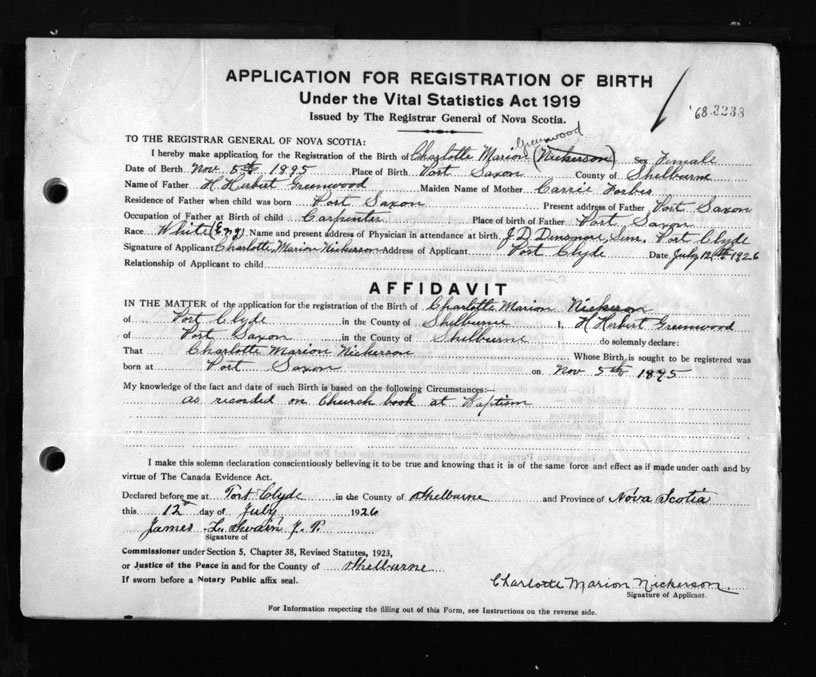 APPLICATION FOR REGISTRATION OF BIRTH
Under the Vital Statistics Act 1919
Issued by The Registrar General of Nova Scotia.
'68 3238
TO THE REGISTRAR GENERAL OF NOVA SCOTIA:
Greenwood
I hereby make application for the Registration of the Birth of Charlotte Marion (Nickerson) Sex Female
Date of Berth Nov 5th 1895 Place of Birth Port Saxon County of Shelburne
Name of Father H Herbert Greenwood Maiden Name of Mother Carrie Forbes
Residence of Father when child was born Port Saxon Present address of Father Port Saxon
Occupation of Father at Birth of child Carpenter Place of birth of Father Port Saxon
Race White (Eng) Name and present address of Physician in attendance at birth J. D. Dinsmore, Senr, Port Clyde
Signature of Applicant Charlotte Marion Nickerson Address of Applicant Port Clyde Date July 12th 1926
Relationship of Applicant to child
AFFIDAVIT
IN THE MATTER of the application for the registration of the Birth of Charlotte Marion Nickerson
of Port Clyde in the County of Shelburne I, H Herbert Greenwood
of Port Saxon in the County of Shelburne do solemnly declare:
That Charlotte Marion Nickerson Whose Birth is sought to be registered was
born at Port Saxon on Nov 5th 1895
My knowledge of the fact and date of such Birth is based on the following Circumstances:—
as recorded on Church book at Baptism
I make this solemn declaration conscientiously believing it to be true and knowing that it is of the same force and effect as if made under oath and by
virtue of The Canada Evidence Act.
Declared before me at Port Clyde in the County of Shelburne and Province of Nova Scotia
this 12 day of July 1926
James L. Swain J. P.
Signature of
Commissioner under Section 5, Chapter 38, Revised Statutes, 1923,
or Justice of the Peace in and for the County of Shelburne
If sworn before a Notary Public affix seal.
Charlotte Marion Nickerson
Signature of Applicant.
For Information respecting the filling out of this Form, see Instructions on the reverse side.